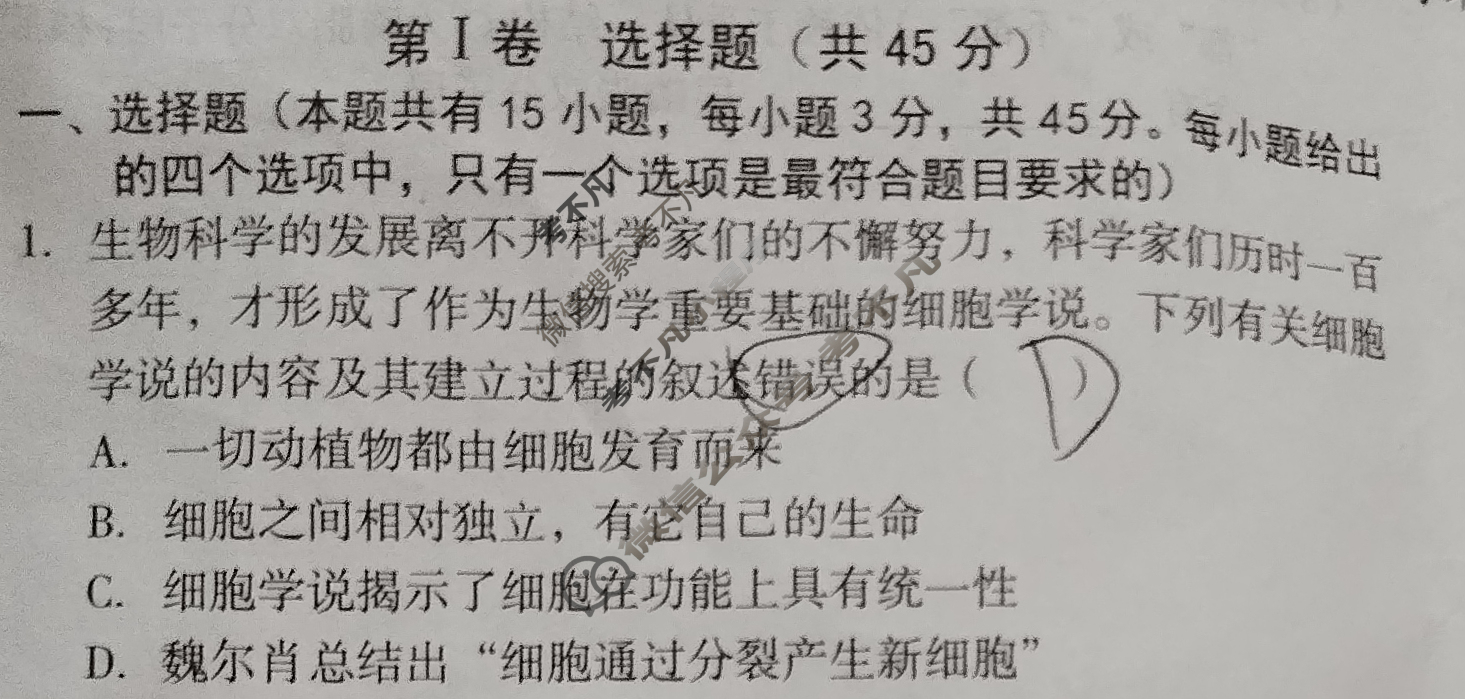 第Ⅰ卷 选择题（共45分）
一、选择题（本题共有15小题，每小题3分，共45分。每小题给出
的四个选项中，只有一个选项是最符合题目要求的）
1. 生物科学的发展离不开科学家们的不懈努力，科学家们历时一百
多年，才形成了作为生物学重要基础的细胞学说。下列有关细胞
学说的内容及其建立过程的叙述错误的是（ D ）
A. 一切动植物都由细胞发育而来
B. 细胞之间相对独立，有它自己的生命
C. 细胞学说揭示了细胞在功能上具有统一性
D. 魏尔肖总结出“细胞通过分裂产生新细胞”